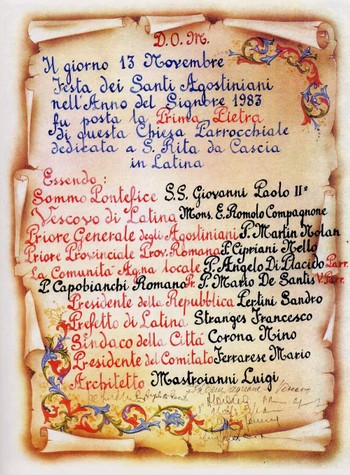 D. O. M.
Il giorno 13 Novembre
Festa dei Santi Agostiniani
nell'Anno del Signore 1983
fu posta la Prima Pietra
di questa Chiesa Parrocchiale
dedicata a S. Rita da Cascia
in Latina
Essendo:
Sommo Pontefice S.S. Giovanni Paolo IIº
Vescovo di Latina Mons. E. Romolo Compagnone
Priore Generale degli Agostiniani P. Martin Nolan
Priore Provinciale Prov. Romana P. Cipriani Nello
La Comunità Agna locale P. Angelo Di Placido Parr.
P. Capobianchi Romano Pr. P. Mario De Santis V. Parr.
Presidente della Repubblica Pertini Sandro
Prefetto di Latina Stranges Francesco
Sindaco della Città Corona Nino
Presidente del Comitato Ferrarese Mario
Architetto Mastroianni Luigi